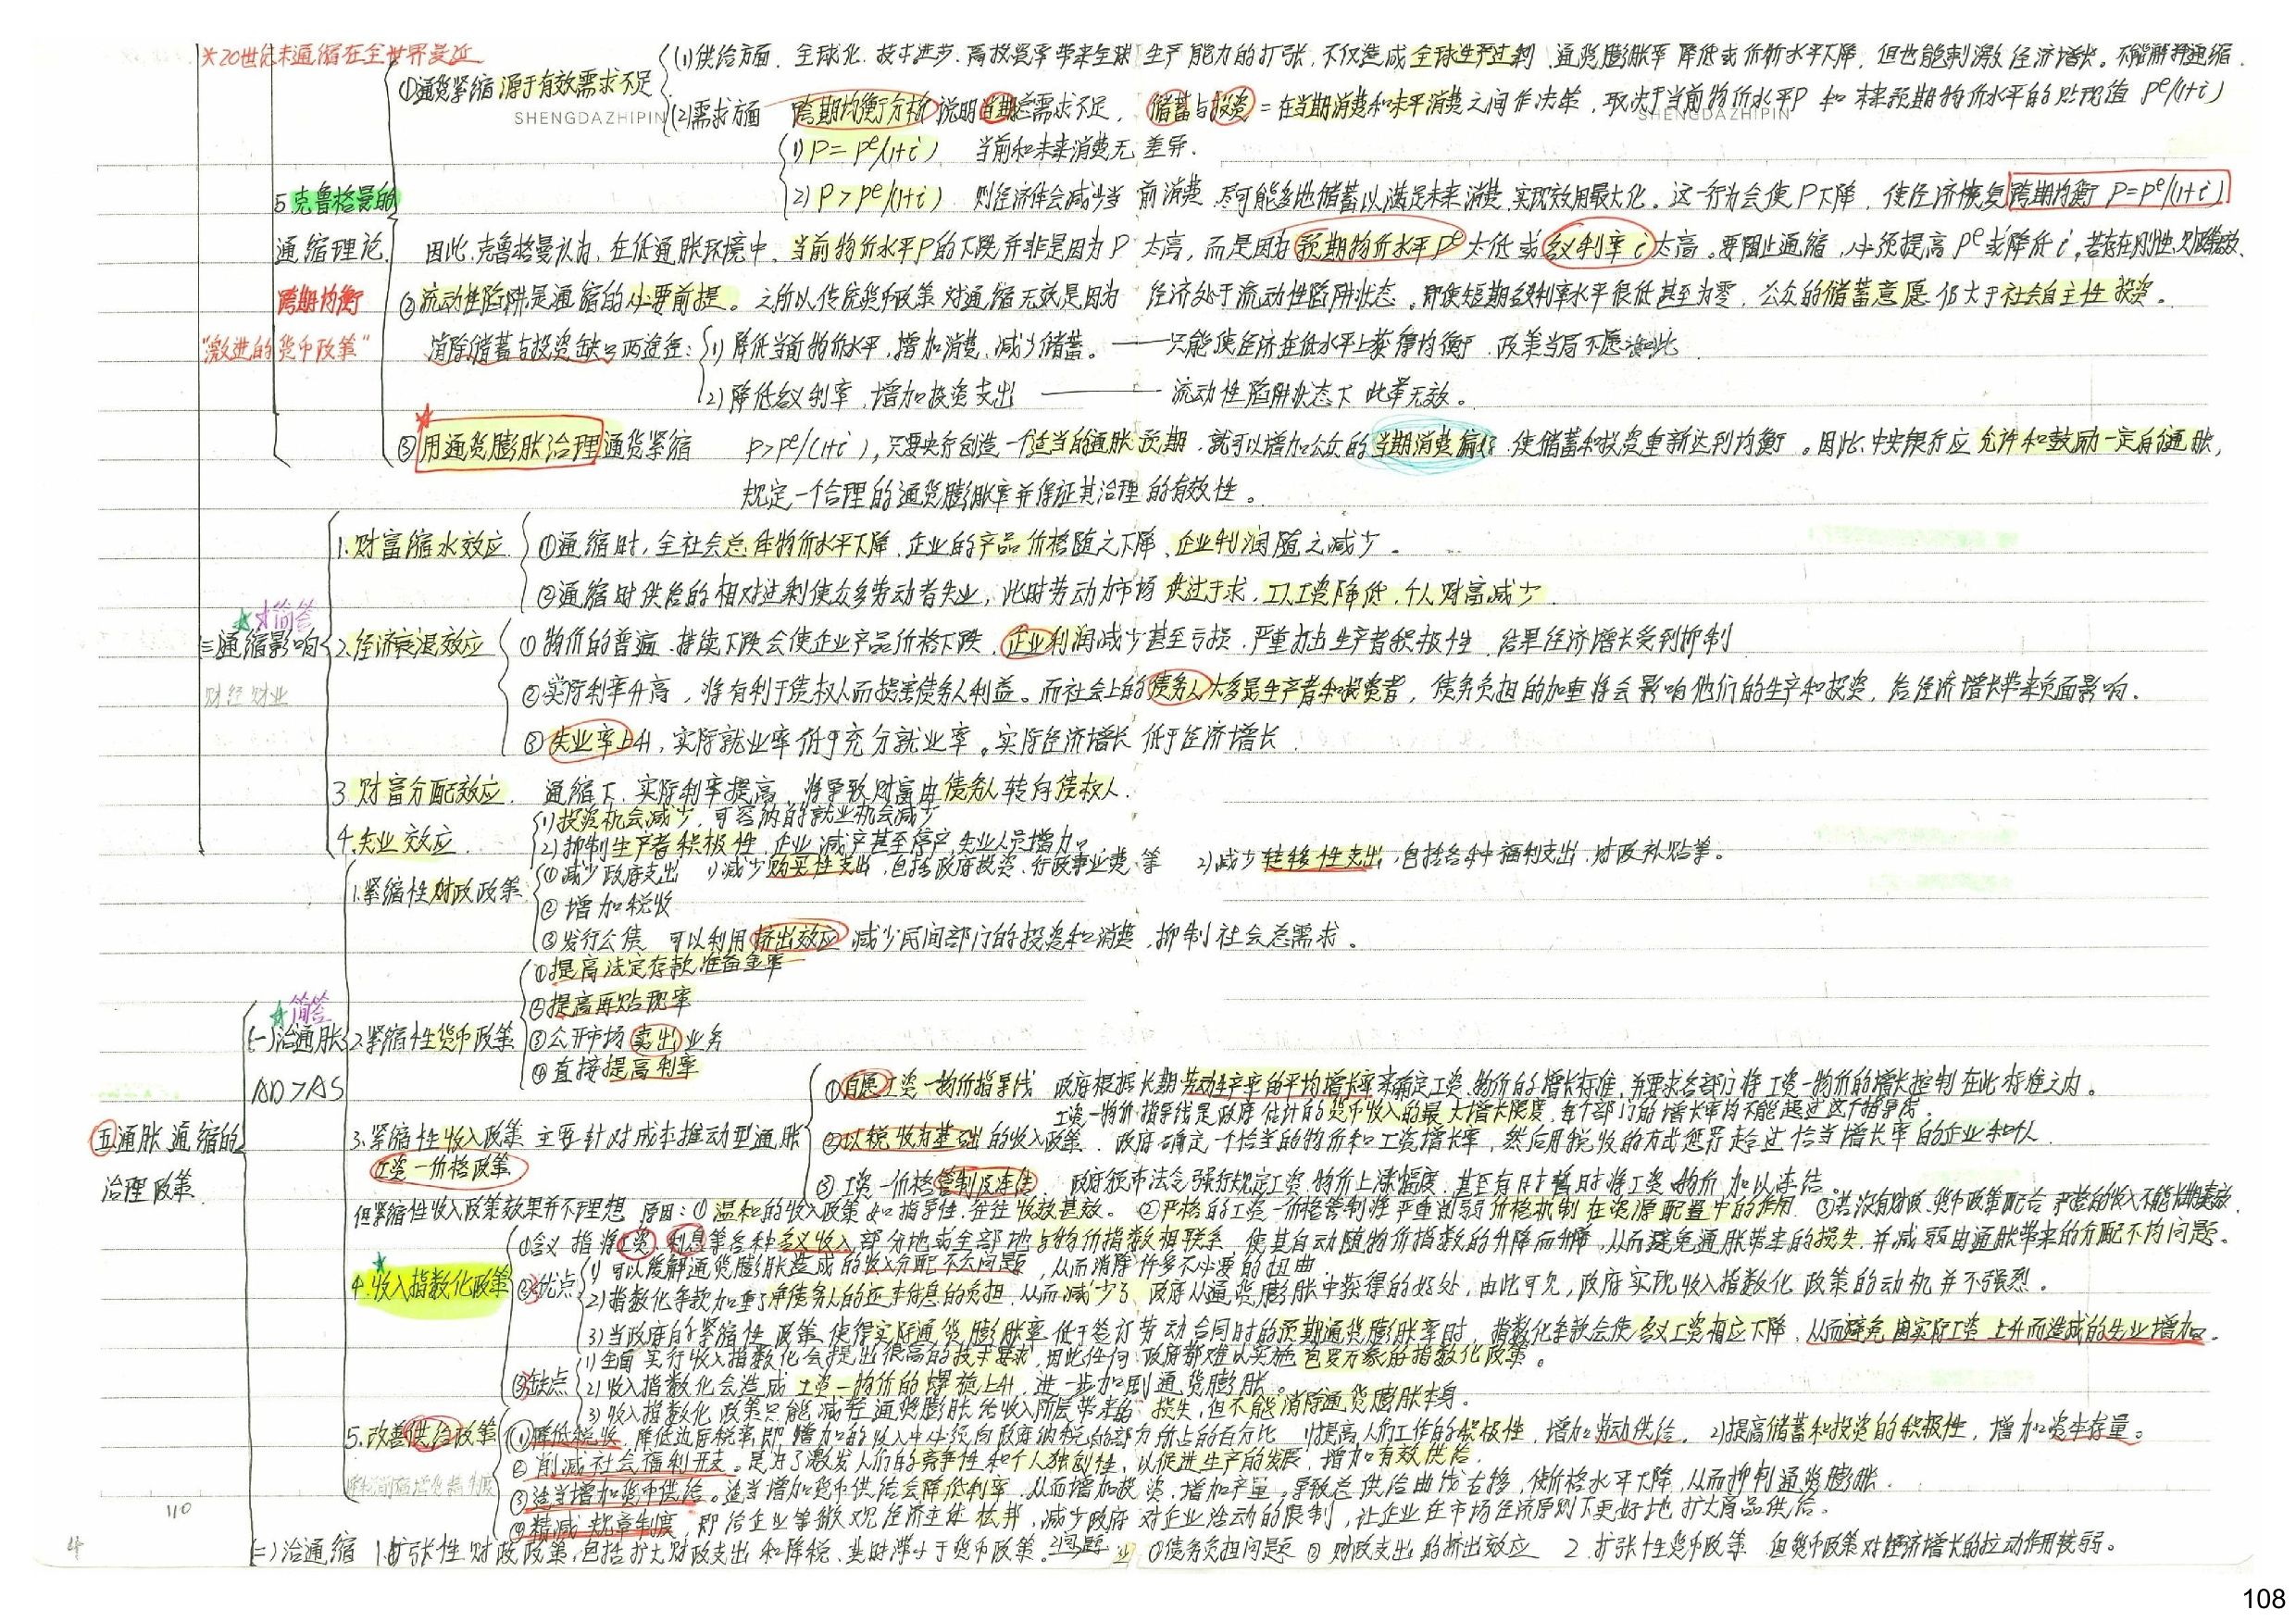 *20世纪末通缩在全世界蔓延
①通货紧缩源于有效需求不足
(1)供给方面. 全球化. 技术进步. 高投资率带来全球生产能力的扩张, 不仅造成全球生产过剩. 通货膨胀率降低或价格水平下降, 但也能刺激经济增长。不能解释通缩.
(2)需求方面 跨期均衡分析说明当期总需求不足, 储蓄与投资=在当期消费和未来消费之间作决策, 取决于当前物价水平P和未来预期物价水平的贴现值 Pᵉ/(1+i)
SHENGDAZHIPIN SHENGDAZHIPIN
1) P=Pᵉ/(1+i) 当前和未来消费无差异.
2) P>Pᵉ/(1+i) 则经济体会减少当前消费, 尽可能多地储蓄以满足未来消费, 实现效用最大化。这一行为会使P下降, 使经济恢复跨期均衡 P=Pᵉ/(1+i)
5.克鲁格曼的
通缩理论.
跨期均衡
"激进的货币政策"
因此, 克鲁格曼认为, 在低通胀环境中, 当前物价水平P的下跌并非是因为P太高, 而是因为预期物价水平Pᵉ太低或名义利率i太高。要阻止通缩, 必须提高Pᵉ或降低i。若存在刚性,
②流动性陷阱是通缩的必要前提。之所以传统货币政策对通缩无效是因为经济处于流动性陷阱状态。即使短期名义利率水平很低甚至为零, 公众的储蓄意愿仍大于社会自主性投资。
消除储蓄与投资缺口两途径:
1) 降低当前物价水平, 增加消费, 减少储蓄。——只能使经济在低水平上获得均衡, 政策当局不愿如此
2) 降低名义利率, 增加投资支出 —— 流动性陷阱状态下此举无效。
③用通货膨胀治理通货紧缩 P>Pᵉ/(1+i), 只要央行创造一个适当的通胀预期, 就可以增加公众的当期消费偏好, 使储蓄和投资重新达到均衡。因此, 中央银行应允许和鼓励一定的通胀,
规定一个合理的通货膨胀率并保证其治理的有效性。
三通缩影响
☆简答
财经财业
1.财富缩水效应
①通缩时, 全社会总体物价水平下降, 企业的产品价格随之下降, 企业利润随之减少。
②通缩时供给的相对过剩使众多劳动者失业, 此时劳动力市场供过于求, 工人工资降低, 个人财富减少.
2.经济衰退效应
①物价的普遍、持续下跌会使企业产品价格下跌, 企业利润减少甚至亏损, 严重打击生产者积极性, 结果经济增长受到抑制
②实际利率升高, 将有利于债权人而损害债务人利益。而社会上的债务人大多是生产者和投资者, 债务负担的加重将会影响他们的生产和投资, 给经济增长带来负面影响.
③失业率上升, 实际就业率低于充分就业率。实际经济增长低于经济增长.
3.财富分配效应. 通缩下, 实际利率提高, 将导致财富由债务人转向债权人.
4.失业效应.
1)投资机会减少, 可容纳的就业机会减少
2)抑制生产者积极性, 企业减产甚至停产, 失业人员增加。
五通胀、通缩的
治理政策.
(一)治通胀
☆简答
AD>AS
1.紧缩性财政政策
①减少政府支出 1)减少购买性支出, 包括政府投资、行政事业费等 2)减少转移性支出, 包括各种福利支出, 财政补贴等。
②增加税收
③发行公债 可以利用挤出效应, 减少民间部门的投资和消费, 抑制社会总需求。
2.紧缩性货币政策
①提高法定存款准备金率
②提高再贴现率
③公开市场卖出业务
④直接提高利率
3.紧缩性收入政策 主要针对成本推动型通胀
工资—价格政策
①自愿工资—物价指导线 政府根据长期劳动生产率的平均增长率来确定工资、物价的增长标准, 并要求各部门将工资—物价的增长控制在此标准之内。
工资—物价指导线是政府估计的货币收入的最大增长限度, 每个部门的增长率均不能超过这个指导线。
②以税收为基础的收入政策. 政府确定一个恰当的物价和工资增长率, 然后用税收的方式惩罚超过恰当增长率的企业和个人.
③工资—价格管制及冻结 政府颁布法令强行规定工资、物价上涨幅度, 甚至有时暂时将工资、物价加以冻结。
但紧缩性收入政策效果并不理想 原因: ①温和的收入政策如指导性, 往往收效甚微。②严格的工资—价格管制将严重削弱价格机制在资源配置中的作用 ③若没有财政、货币政策配合, 严格的收入不能长期奏效
4.收入指数化政策
①含义 指将工资、利息等各种名义收入部分地或全部地与物价指数相联系, 使其自动随物价指数的升降而升降, 从而避免通胀带来的损失, 并减弱由通胀带来的分配不均问题。
②优点
1) 可以缓解通货膨胀造成的收入分配不公问题, 从而消除许多不必要的扭曲.
2)指数化条款加重了净债务人的还本付息的负担, 从而减少了政府从通货膨胀中获得的好处, 由此可见, 政府实现收入指数化政策的动机并不强烈。
3)当政府的紧缩性政策使得实际通货膨胀率低于签订劳动合同时的预期通货膨胀率时, 指数化条款会使名义工资相应下降, 从而避免因实际工资上升而造成的失业增加。
③缺点
1)全面实行收入指数化会提出很高的技术要求, 因此任何政府都难以实施包罗万象的指数化政策。
2)收入指数化会造成工资—物价的螺旋上升, 进一步加剧通货膨胀。
3)收入指数化政策只能减轻通货膨胀给收入阶层带来的损失, 但不能消除通货膨胀本身.
5.改善供给政策
①降低税收, 降低边际税率, 即增加的收入中必须向政府纳税的部分所占的百分比 1)提高人们工作的积极性, 增加劳动供给. 2)提高储蓄和投资的积极性, 增加资本存量。
②削减社会福利开支。是为了激发人们的竞争性和个人独创性, 以促进生产的发展, 增加有效供给.
③适当增加货币供给。适当增加货币供给会降低利率, 从而增加投资, 增加产量, 导致总供给曲线右移, 使价格水平下降, 从而抑制通货膨胀.
④精减规章制度, 即给企业等微观经济主体松绑, 减少政府对企业活动的限制, 让企业在市场经济原则下更好地扩大商品供给。
110
(二)治通缩 1.扩张性财政政策, 包括扩大财政支出和降税, 其时滞小于货币政策。问题 ①债务负担问题 ②财政支出的挤出效应 2.扩张性货币政策 但货币政策对经济增长的拉动作用较弱。
108